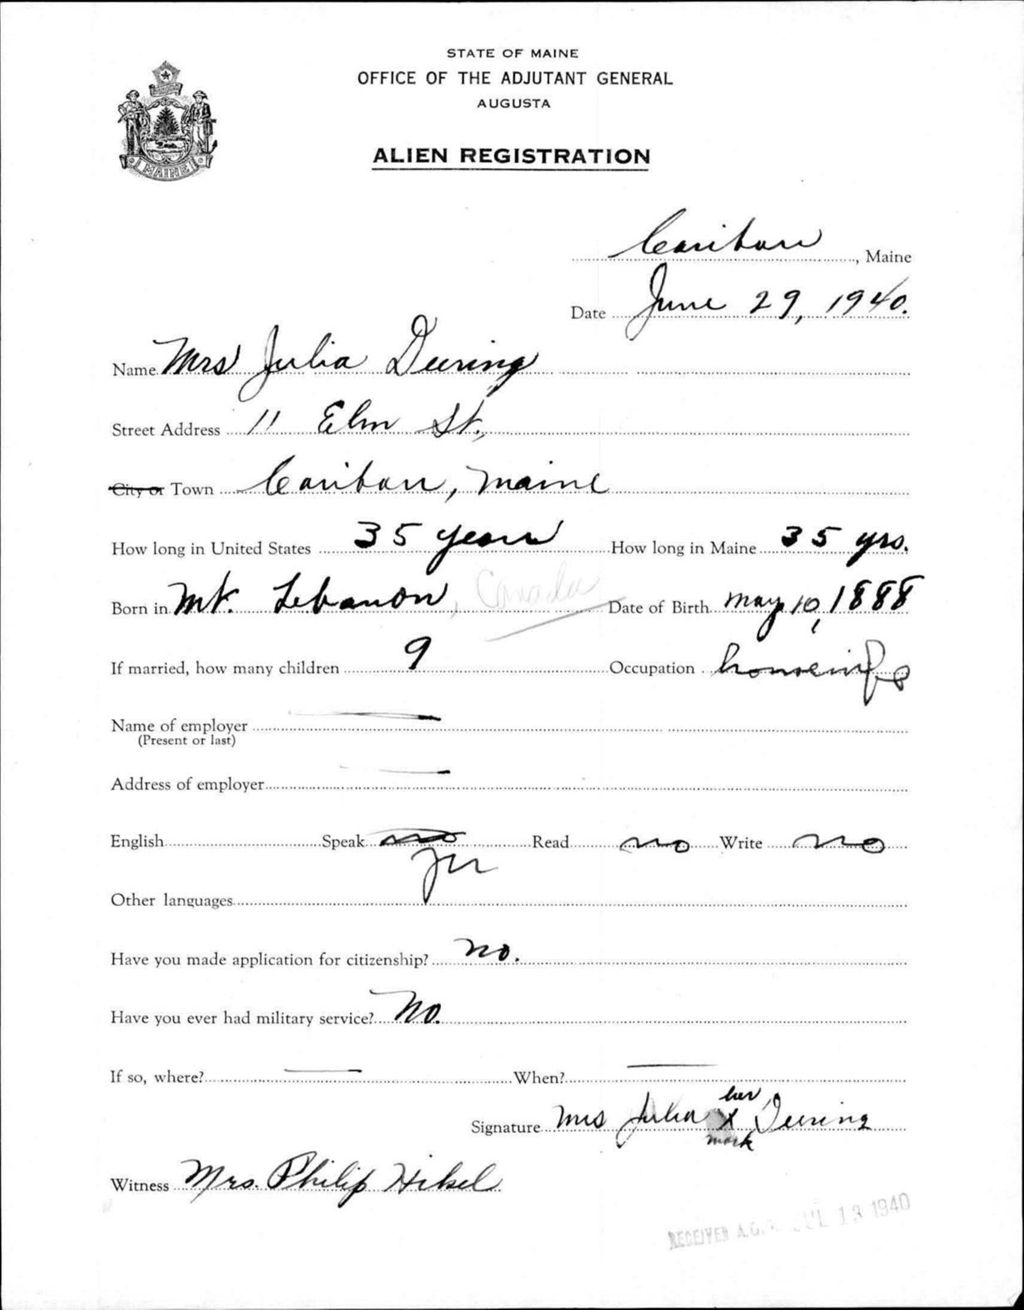 STATE OF MAINE
OFFICE OF THE ADJUTANT GENERAL
AUGUSTA
ALIEN REGISTRATION
MAINE
Caribou, Maine
Date June 29, 1940.
Name Mrs Julia Deering
Street Address 11 Elm St.,
City or Town Caribou, Maine
How long in United States 35 years How long in Maine 35 yrs.
Born in Mt. Lebanon, Canada Date of Birth May 10, 1888
If married, how many children 9 Occupation housewife
Name of employer
(Present or last)
Address of employer
English Speak no Read no Write no
yes
Other languages
Have you made application for citizenship? No.
Have you ever had military service? No.
If so, where? When?
her
Signature Mrs Julia X Deering
mark
Witness Mrs. Philip Hikel
RECEIVED A.G.O. JUL 13 1940